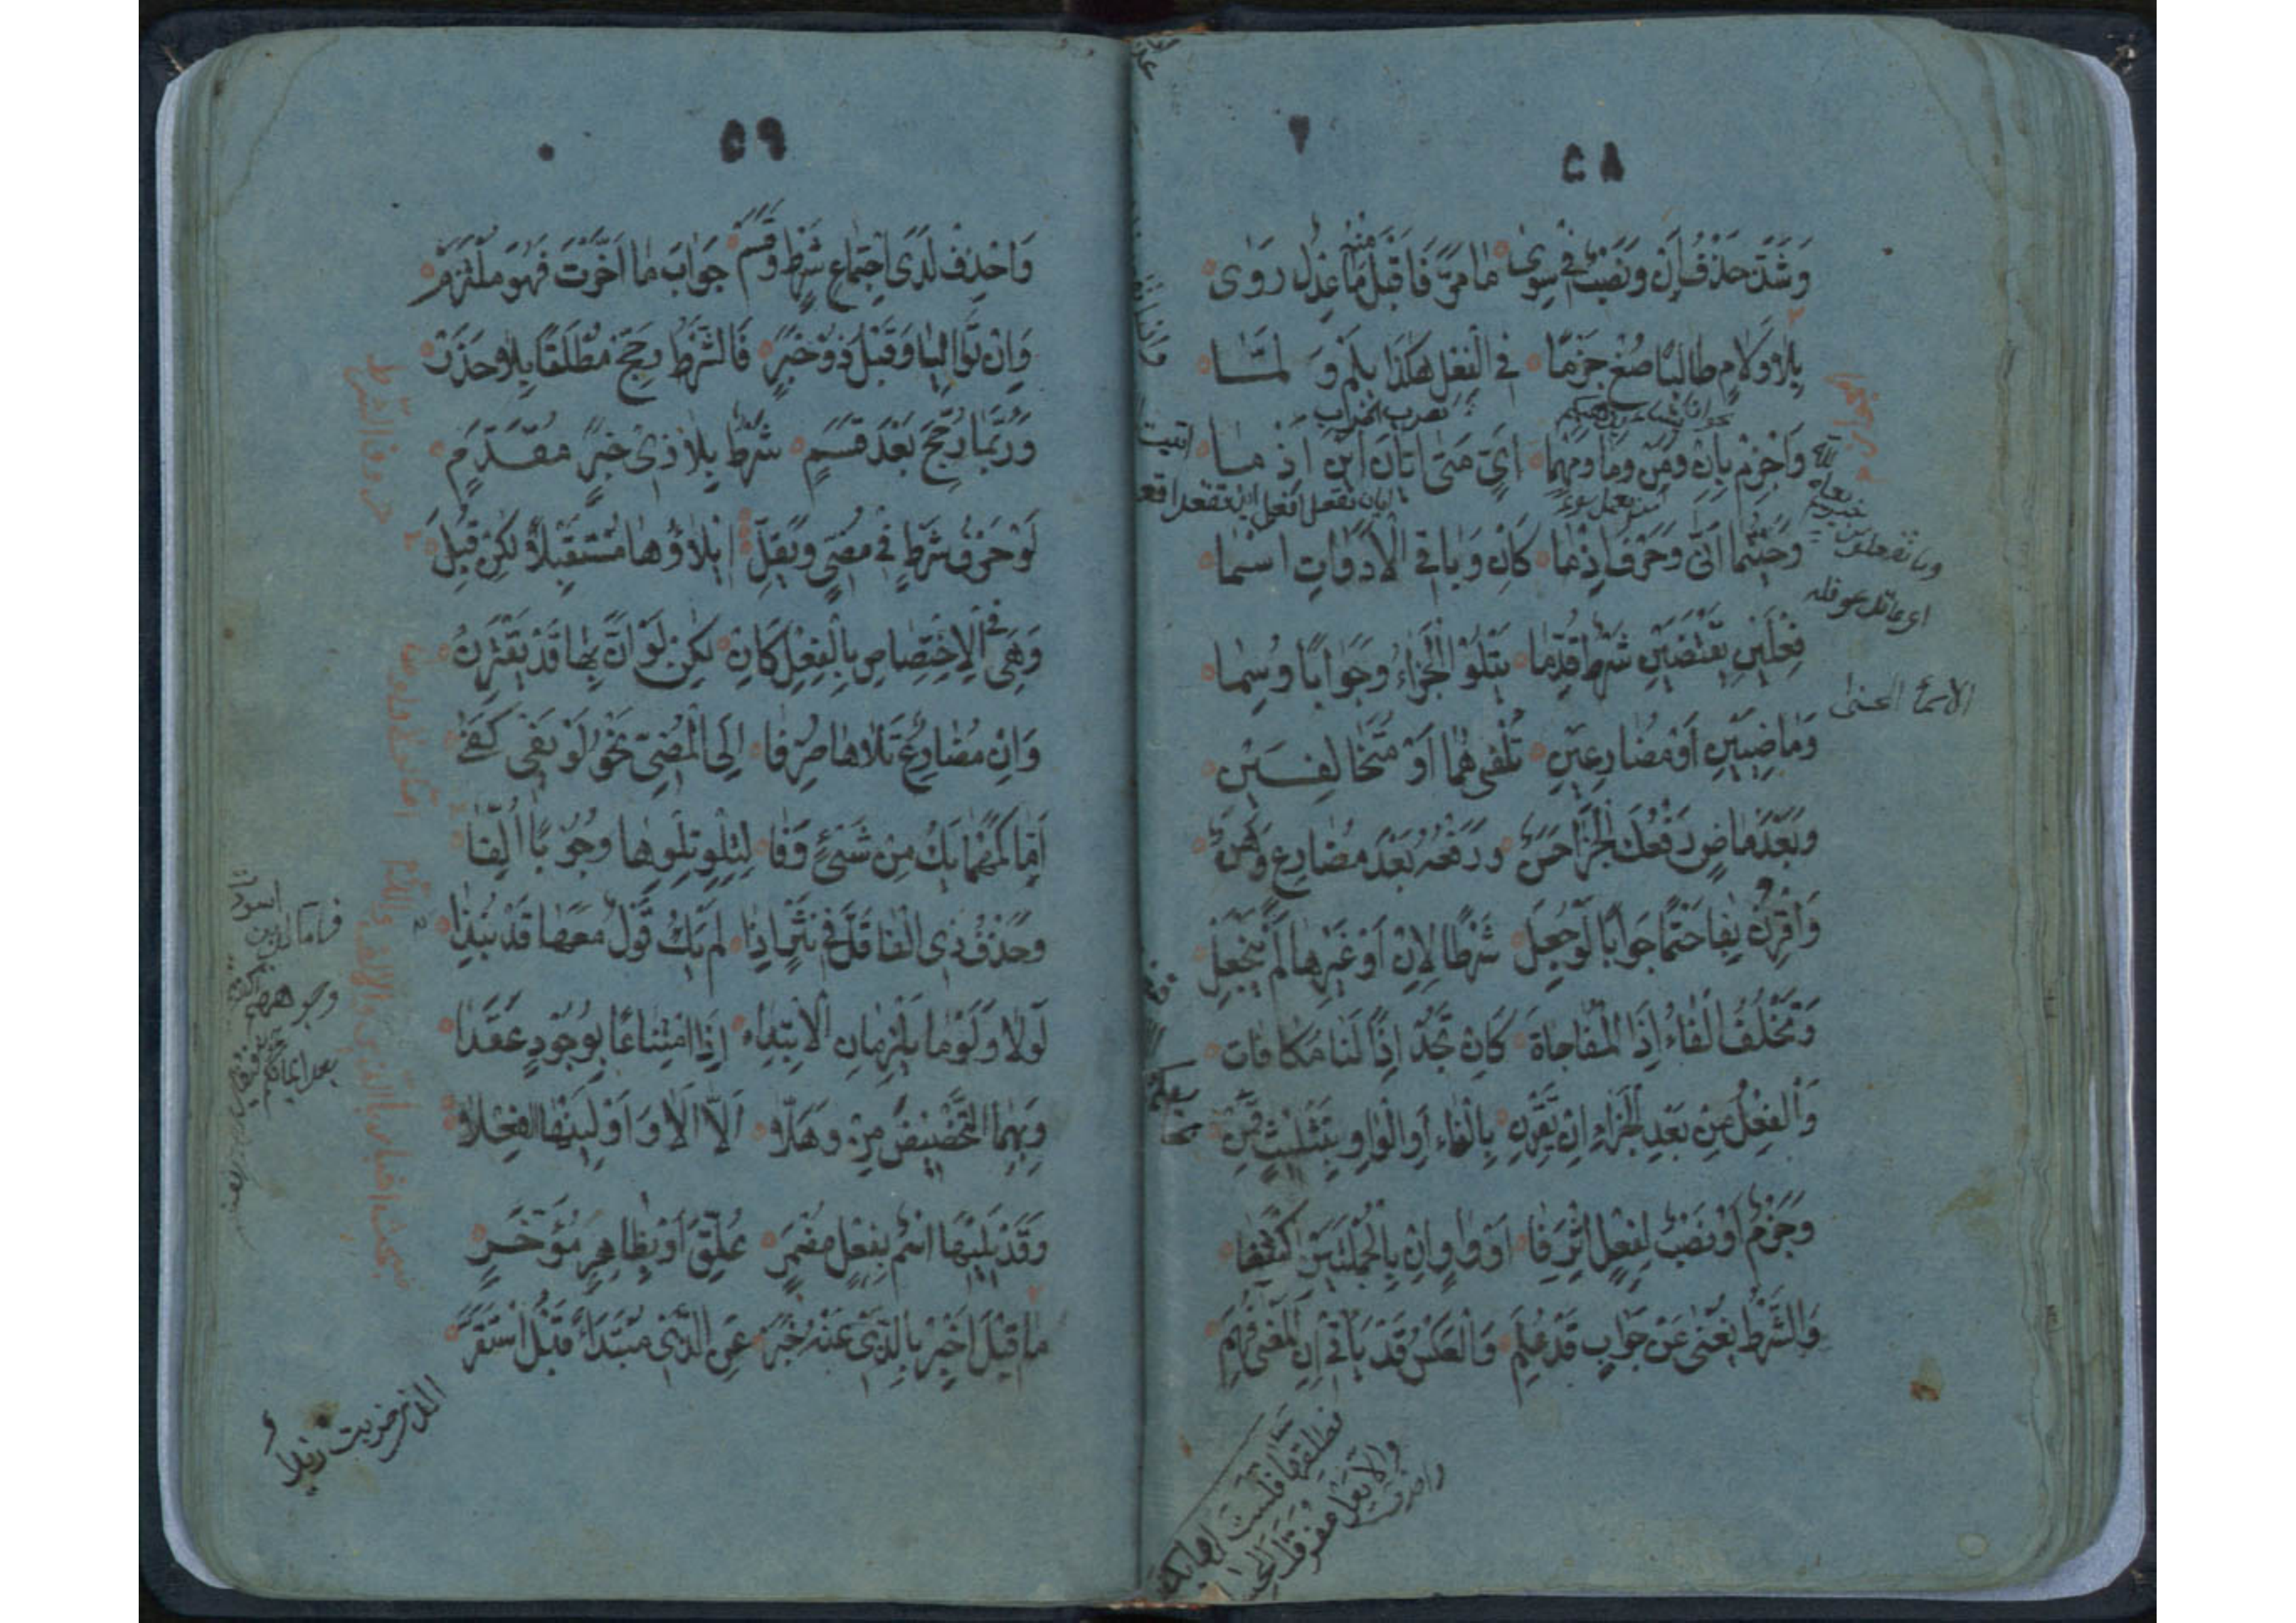 ٥٨
وَشَذَّ حَذْفُ أَنْ وَنَصْبٌ فِي سِوَى مَا مَرَّ فَاقْبَلْ مِنْهُ مَا عَدْلٌ رَوَى
بِلَا وَلَامٍ طَالِبًا ضَعْ جَزْمًا فِي الْفِعْلِ هَكَذَا بِلَمْ وَ لَمَّا
وَاجْزِمْ بِإِنْ وَمَنْ وَمَا وَمَهْمَا أَيٍّ مَتَى أَيَّانَ أَيْنَ إِذْ مَا
ايان تفعل افعل اين تفعل افعل
وَحَيْثُمَا أَنَّى وَحَرْفٌ إِذْمَا كَإِنْ وَبَاقِي الْأَدَوَاتِ اسْمَا
فِعْلَيْنِ يَقْتَضِينَ شَرْطٌ قُدِّمَا يَتْلُوا الْجَزَاءُ وَجَوَابًا وُسِمَا
الاسماء الحسنى
وَمَاضِيَيْنِ أَوْ مُضَارِعَيْنِ تُلْفِيهُمَا أَوْ مُتَخَالِفَيْنِ
وَبَعْدَ مَاضٍ رَفْعُكَ الْجَزَا حَسَنٌ وَرَفْعُهُ بَعْدَ مُضَارِعٍ وَهَنَ
وَاقْرُنْ بِفَا حَتْمًا جَوَابًا لَوْ جُعِلَ شَرْطًا لِإِنْ أَوْ غَيْرِهَا لَمْ يَنْجَعِلْ
وَتَخْلُفُ الْفَاءَ إِذَا الْمُفَاجَاةِ كَإِنْ تَجُدْ إِذًا لَنَا مُكَافَات
وَالْفِعْلُ مِنْ بَعْدِ الْجَزَاءِ إِنْ يَقْتَرِنْ بِالْفَاءِ أَوِ الْوَاوِ بِتَثْلِيثٍ قَمِنْ
وَجَزْمٌ أَوْ نَصْبٌ لِفِعْلٍ إِثْرَ فَا أَوْ وَاوٍ انْ بِالْجُمْلَتَيْنِ اكْتُنِفَا
وَالشَّرْطُ يُغْنِي عَنْ جَوَابٍ قَدْ عُلِمَ وَالْعَكْسُ قَدْ يَأْتِي إِنِ الْمَعْنَى فُهِمَ
فطلقها فلست لها بكفؤ
والا يعل مفرقك الحسام
٥٩
وَاحْذِفْ لَدَى اجْتِمَاعِ شَرْطٍ وَقَسَمٍ جَوَابَ مَا أَخَّرْتَ فَهُوَ مُلْتَزَمٌ
وَإِنْ تَوَالَيَا وَقَبْلُ ذُو خَبَرٍ فَالشَّرْطَ رَجِّحْ مُطْلَقًا بِلَا حَذَرْ
وَرُبَّمَا رُجِّحَ بَعْدَ قَسَمٍ شَرْطٌ بِلَا ذِي خَبَرٍ مُقَدَّمٍ
لَوْ حَرْفُ شَرْطٍ فِي مُضِيٍّ وَيَقِلّ إِيلَاؤُهَا مُسْتَقْبَلًا لَكِنْ قُبِلَ
وَهِيَ فِي الِاخْتِصَاصِ بِالْفِعْلِ كَإِنْ لَكِنَّ لَوْ أَنَّ بِهَا قَدْ يَقْتَرِنُ
وَإِنْ مُضَارِعٌ تَلَاهَا صُرِفَا إِلَى الْمُضِيِّ نَحْوُ لَوْ يَفِي كَفَى
أَمَّا كَمَهْمَا يَكُ مِنْ شَيْئٍ وَفَا لِتِلْوِ تِلْوِهَا وُجُوبًا أُلِفَا
وَحَذْفُ ذِي الْفَا قَلَّ فِي نَثْرٍ إِذَا لَمْ يَكُ قَوْلٌ مَعَهَا قَدْ نُبِذَا
لَوْلَا وَلَوْمَا يَلْزَمَانِ الِابْتِدَاءَ إِذَا امْتِنَاعًا بِوُجُودٍ عَقَدَا
وَبِهِمَا التَّحْضِيضَ مِزْ وَهَلَّا أَلَّا أَلَا وَأَوْلِيَنْهَا الْفِعْلَا
وَقَدْ يَلِيهَا اسْمٌ بِفِعْلٍ مُضْمَرٍ عُلِّقَ أَوْ بِظَاهِرٍ مُؤَخَّرٍ
مَا قِيلَ أَخْبِرْ بِالَّذِي عَنْهُ خَبَرٌ عَنِ الَّذِي مُبْتَدَاءً قَبْلُ اسْتَقَرَّ
فاما الذين اسودت
وجوههم اكفرتم
بعد ايمانكم
الذي ضربت زيدا